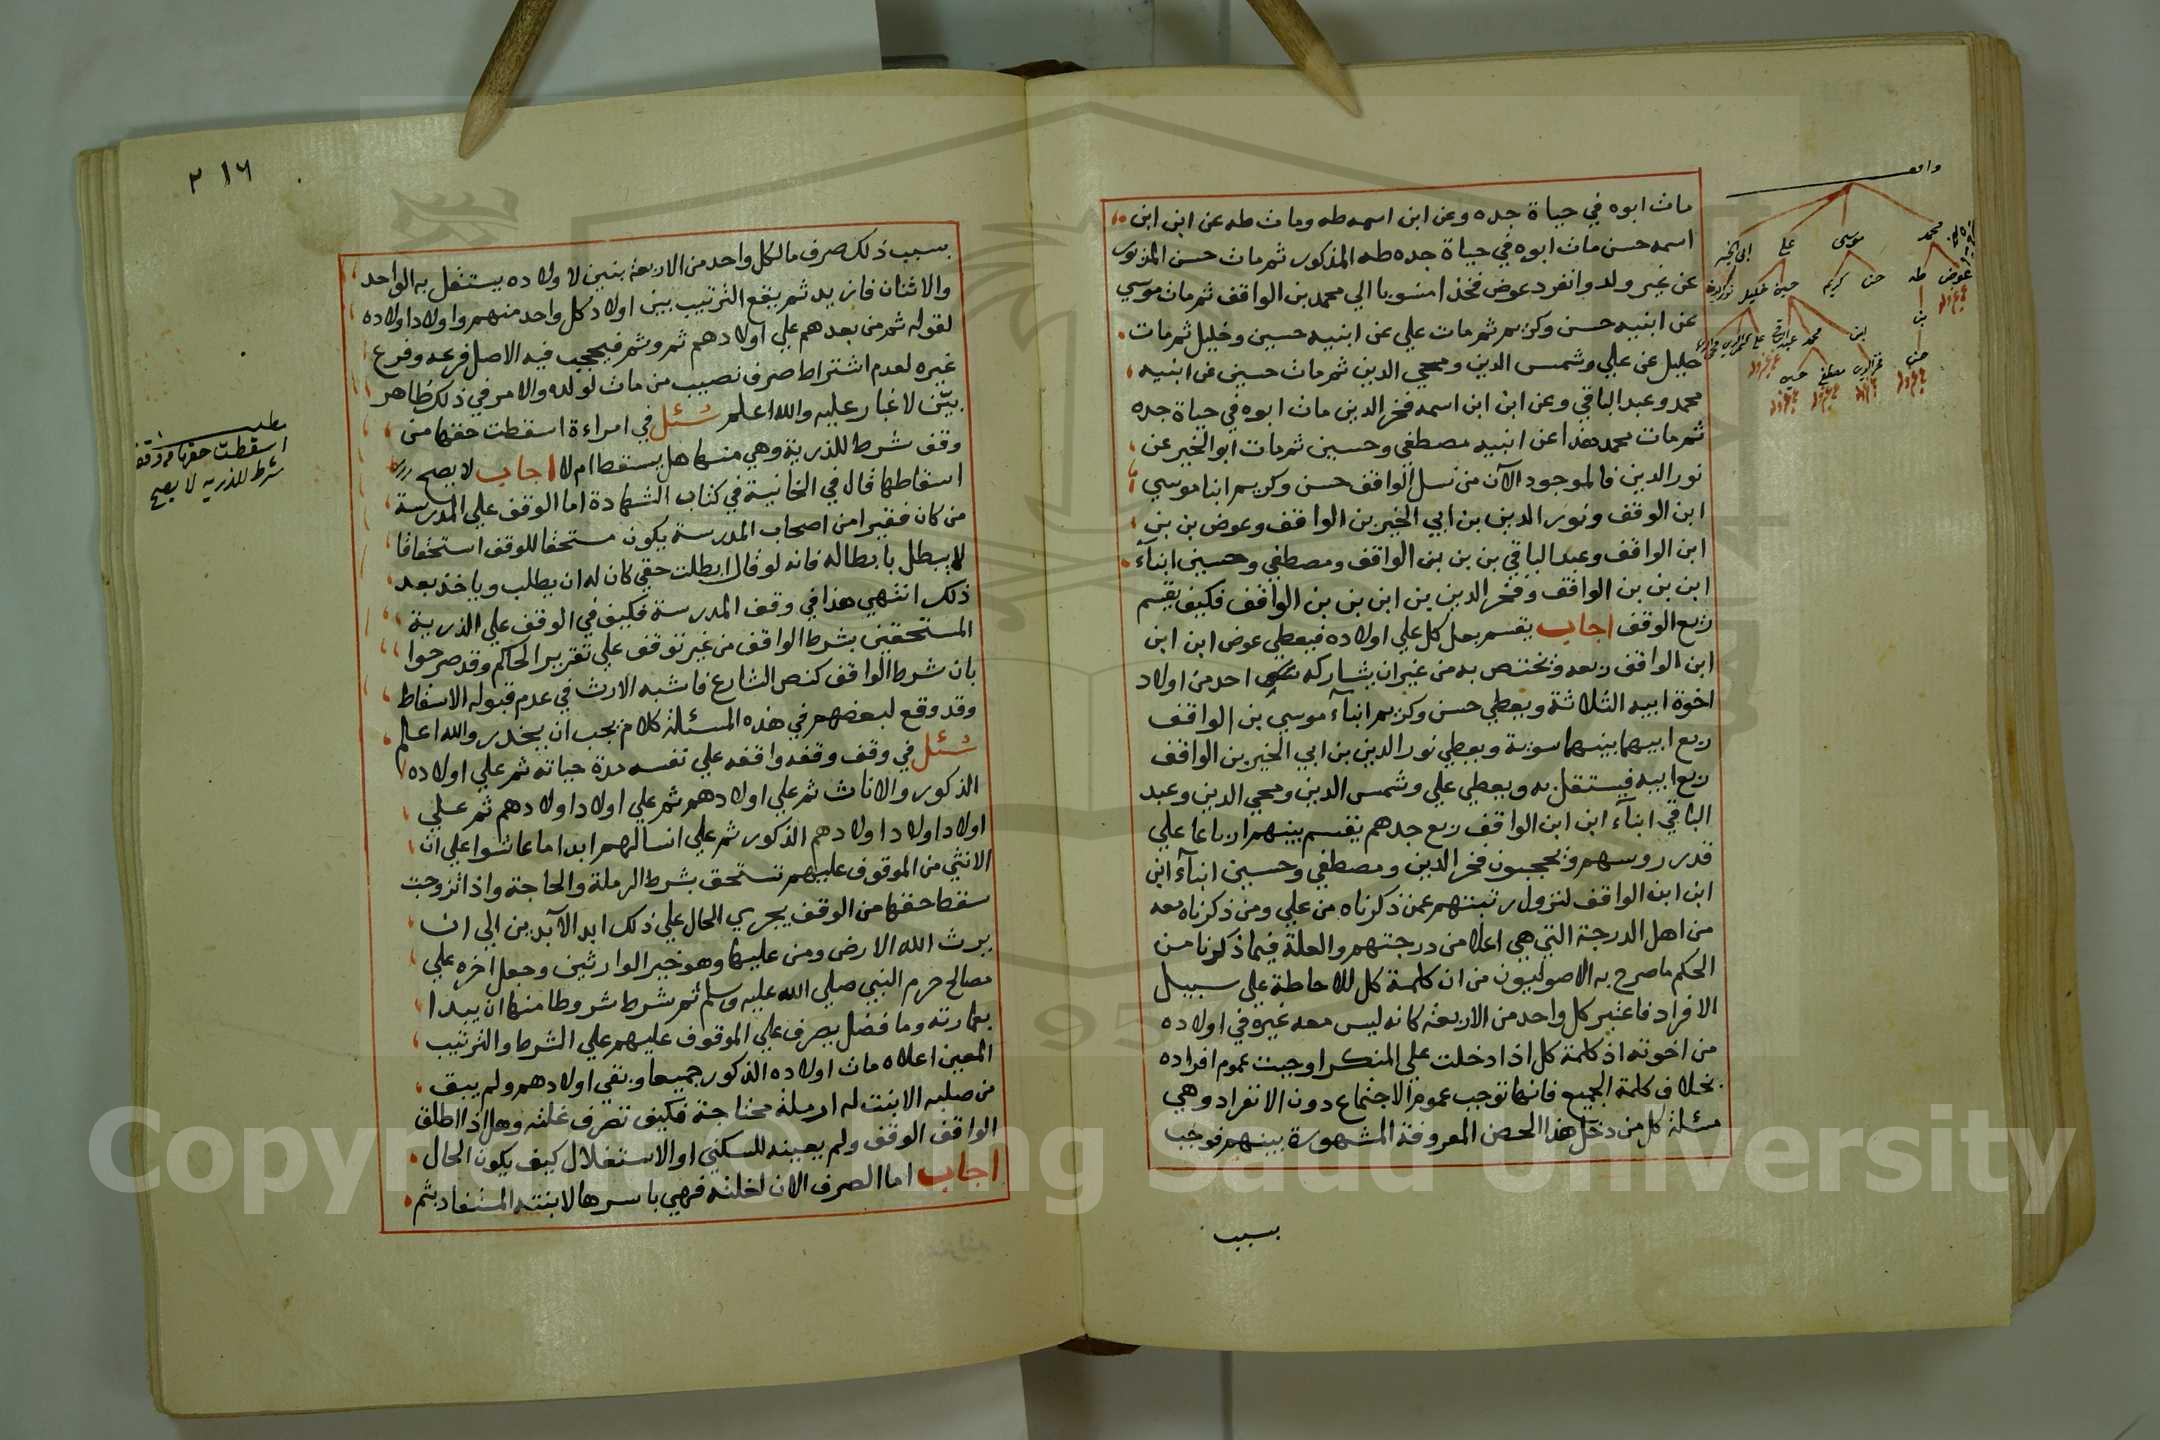 مات ابوه في حياة جده وعن ابن اسمه طه ومات طه عن ابن ابن
اسمه حسن مات ابوه في حياة جده طه المذكور ثم مات حسن المزبور
عن غير ولد وانفرد عوض فخذا منسوبا الي محمد بن الواقف ثم مات موسي
عن ابنيه حسن وكريم ثم مات علي عن ابنيه حسين وخليل ثم مات
خليل عن علي وشمس الدين ومحي الدين ثم مات حسين عن ابنيه
محمد وعبد الباقي وعن ابن ابن اسمه فخر الدين مات ابوه في حياة جده
ثم مات محمد هذا عن ابنيه مصطفي وحسين ثم مات ابو الخير عن
نور الدين فالموجود الآن من نسل الواقف حسن وكريم ابنا موسي
ابن الوقف ونور الدين بن ابي الخير بن الواقف وعوض بن بن
ابن الواقف وعبد الباقي بن بن بن الواقف ومصطفي وحسين ابناء
ابن بن بن الواقف وفخر الدين بن ابن بن بن الواقف فكيف يقسم
ريع الوقف اجاب يقسم بجعل كل علي اولاده فيعطي عوض ابن ابن
ابن الواقف ربعه ويختص به من غير ان يشاركه احد من اولاد
اخوة ابيه الثلاثة ويعطي حسن وكريم ابناء موسي بن الواقف
ربع ابيهما بينهما سوية ويعطي نور الدين بن ابي الخير بن الواقف
ربع ابيه فيستقل به ويعطي علي وشمس الدين ومحي الدين وعبد
الباقي ابناء ابن ابن الواقف ربع جدهم يقسم بينهم ارباعا علي
قدر روسهم ويحجبون فخر الدين ومصطفي وحسين ابناء ابن
ابن ابن الواقف لنزول رتبتهم عمن ذكرناه من علي ومن ذكرناه بعه
من اهل الدرجة التي هي اعلا من درجتهم والعلة فيما ذكرنا من
الحكم ما صرح به الاصوليون من ان كلمة كل للاحاطة علي سبيل
الافراد فاعتبر كل واحد من الاربعة كانه ليس معه غيره في اولاده
من اخوته اذ كلمة كل اذا دخلت علي المنكر اوجبت عموم افراده
بخلاف كلمة الجميع فانها توجب عموم الاجتماع دون الانفراد وهي
مسئلة كل من دخل هذا الحصن المعروفة المشهورة بينهم فوجب
بسبب
واقف
محمد موسى علي ابى الخير
عوض طه حسن كريم حسين خليل نور الدين
بن ابن محمد عبد الباقي علي
حسن فخر الدين مصطفى حسين
٢١٦
بسبب ذلك صرف مال كل واحد من الاربعة بنين لاولاده يستقل به الواحد
والاثنان فازيد ثم يقع الترتيب بين اولاد كل واحد منهم واولاد اولاده
لقوله ثم من بعدهم علي اولادهم ثم وثم فيحجب فيه الاصل فرعه وفرع
غيره لعدم اشتراط صرف نصيب من مات لولده والامر في ذلك ظاهر
بيّن لا غبار عليه والله اعلم سُئل في امراءة اسقطت حقها من
وقف شرط للذرية وهي منها هل يسقط ام لا اجاب لا يصح
اسقاطها قال في الخانية في كتاب الشهادة اما الوقف علي المدرسة
من كان فقيرا من اصحاب المدرسة يكون مستحقا للوقف استحقاقا
لا يبطل بابطاله فانه لو قال ابطلت حقي كان له ان يطلب وياخذ بعد
ذلك انتهي هذا في وقف المدرسة فكيف في الوقف علي الذرية
المستحقين بشرط الواقف من غير توقف علي تقرير الحاكم وقد صرحوا
بان شرط الواقف كنص الشارع فاشبه الارث في عدم قبوله الاسقاط
وقد وقع لبعضهم في هذه المسئلة كلام يجب ان يحذر والله اعلم
سُئل في وقف وقفه واقفه علي نفسه مدة حياته ثم علي اولاده
الذكور والاناث ثم علي اولادهم ثم علي اولاد اولادهم ثم علي
اولاد اولاد اولادهم الذكور ثم علي انسالهم ابدا ما عاشوا علي ان
الانثي من الموقوف عليهم تستحق بشرط الرملة والحاجة واذا تزوجت
سقط حقها من الوقف يجري الحال علي ذلك ابد الآبدين الي ان
يرث الله الارض ومن عليها وهو خير الوارثين وجعل اخره علي
مصالح حرم النبي صلي الله عليه وسلم ثم شرط شروطا منها ان يبدا
بعمارته وما فضل يصرف علي الموقوف عليهم علي الشرط والترتيب
المعين اعلاه مات اولاده الذكور جميعا وبقي اولادهم ولم يبق
من صلبه الا بنت له ارملة محتاجة فكيف تصرف غلته وهل اذا اطلق
الواقف الوقف ولم يعينه للسكني او الاستغلال كيف يكون الحال
اجاب اما الصرف الان لغلته فهي باسرها لابنته المستفاد بثم
مطلب
اسقطت حقها من وقف
شرط للذريه لا يصح
Copyright © King Saud University